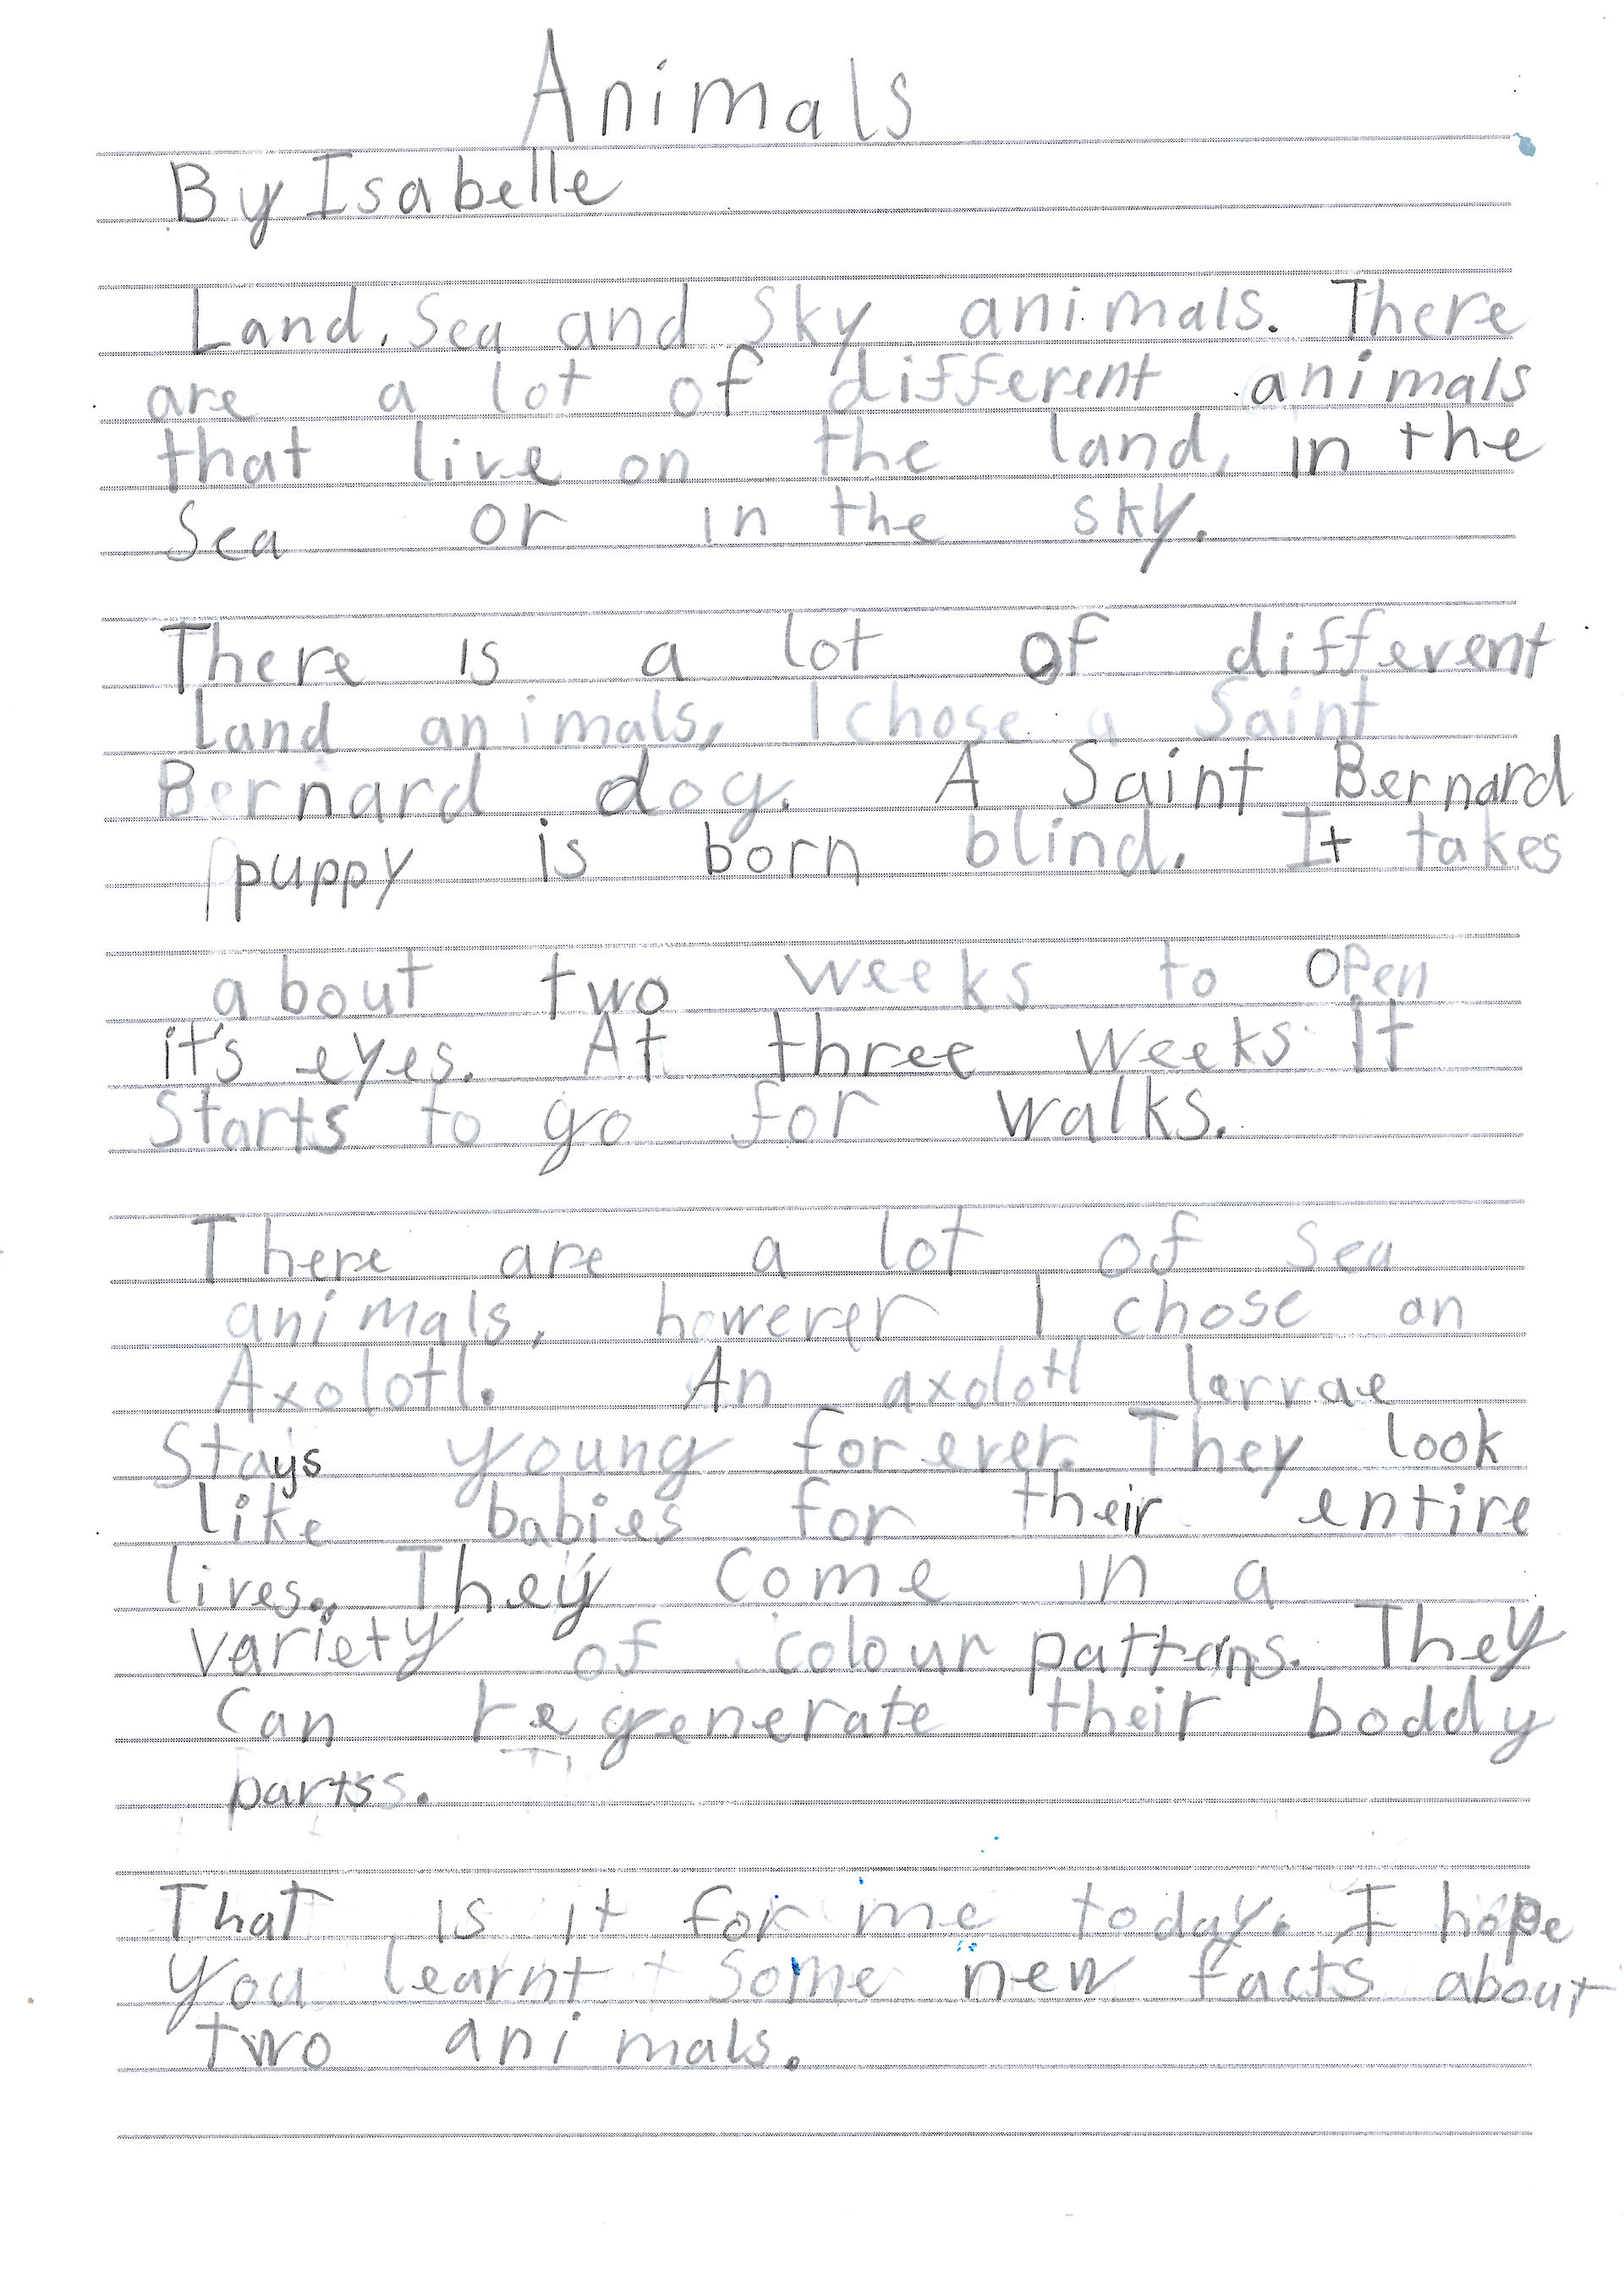 Animals
By Isabelle
Land, Sea and Sky animals. There
are a lot of different animals
that live on the land, in the
Sea or in the sky.
There is a lot of different
Land animals, I chose a Saint
Bernard dog. A Saint Bernard
puppy is born blind. It takes
about two weeks to open
it's eyes. At three weeks It
Starts to go for walks.
There are a lot of Sea
animals, however I chose an
Axolotl. An axolotl larvae
Stays young forever. They look
like babies for their entire
lives. They Come in a
variety of colour patterns. They
Can regenerate their boddy
partss.
That is it for me today. I hope
you learnt some new facts about
two animals.